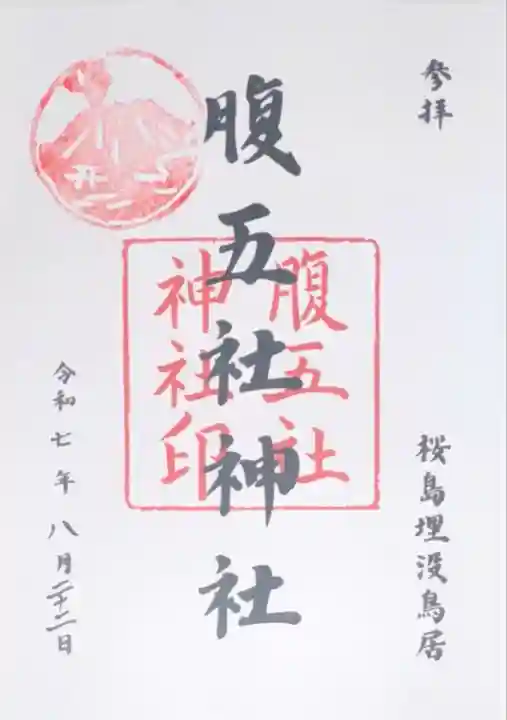 参拝
桜島埋没鳥居
腹五社神社
腹五社
神社印
令和七年 八月二十二日